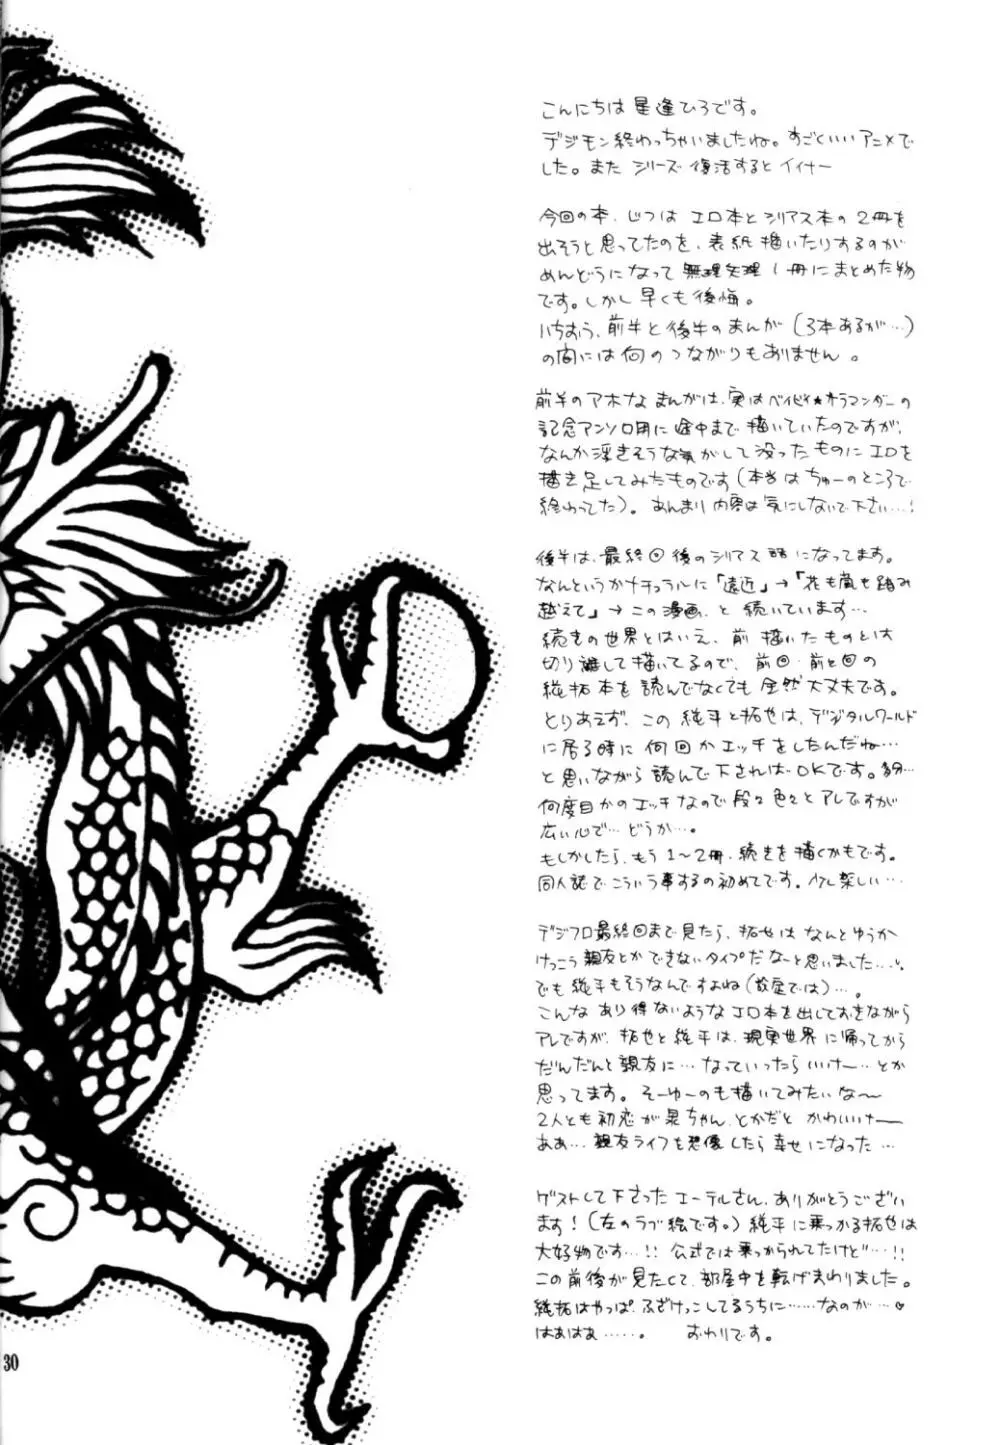 こんにちは星逢ひろです。
デジモン終わっちゃいましたね。すごくいいアニメで
した。また シリーズ 復活するとイイナー
今回の本、じつは エロ本とシリアス本の2冊を
出そうと思ってたのを、表紙描いたりするのが
めんどうになって 無理矢理1冊にまとめた物
です。しかし早くも後悔。
いちおう、前半と後半のまんが(3本あるが…)
の間には何のつながりもありません。
前半のアホなまんがは、実はベイビィ★サラマンダーの
記念アンソロ用に途中まで描いていたのですが、
なんか浮きそうな気がして没ったものにエロを
描き足してみたものです(本当はちゅーのところで
終わってた)。あんまり内容は気にしないで下さい…!
後半は、最終回後のシリアス話になってます。
なんというかナチュラルに「遠近」→「花も嵐も踏み
越えて」→この漫画、と続いています…
続きの世界とはいえ、前描いたものとは
切り離して描いてるので、前回・前々回の
純拓本を読んでなくても全然大丈夫です。
とりあえず、この純平と拓也は、デジタルワールド
に居る時に何回かエッチをしたんだね…
と思いながら読んで下さればOKです。多分…
何度目かのエッチなので段々色々とアレですが
広い心で…どうか…。
もしかしたら、もう1〜2冊、続きを描くかもです。
同人誌でこういう事するの初めてです。少し楽しい…
デジフロ最終回まで見たら、拓也はなんとゆうか
けっこう親友とかできないタイプだな〜と思いました…。
でも純平もそうなんですよね(設定では)…。
こんなあり得ないようなエロ本を出しておきながら
アレですが、拓也と純平は、現実世界に帰ってから
だんだんと親友に…なっていったらいいけー…とか
思ってます。そーゆーのも描いてみたいな〜
2人とも初恋が泉ちゃん、とかだとかわいいけー
ああ…親友ライフを想像したら幸せになった…
ゲストして下さったエーテルさん、ありがとうござい
ます!(左のラブ絵です。)純平に乗っかる拓也は
大好物です…!!公式では乗っかられてたけど…!!
この前後が見たくて、部屋中を転げまわりました。
純拓はやっぱ、ふざけっこしてるうちに……なのが…♥
はぁはぁ……。 おわりです。
30